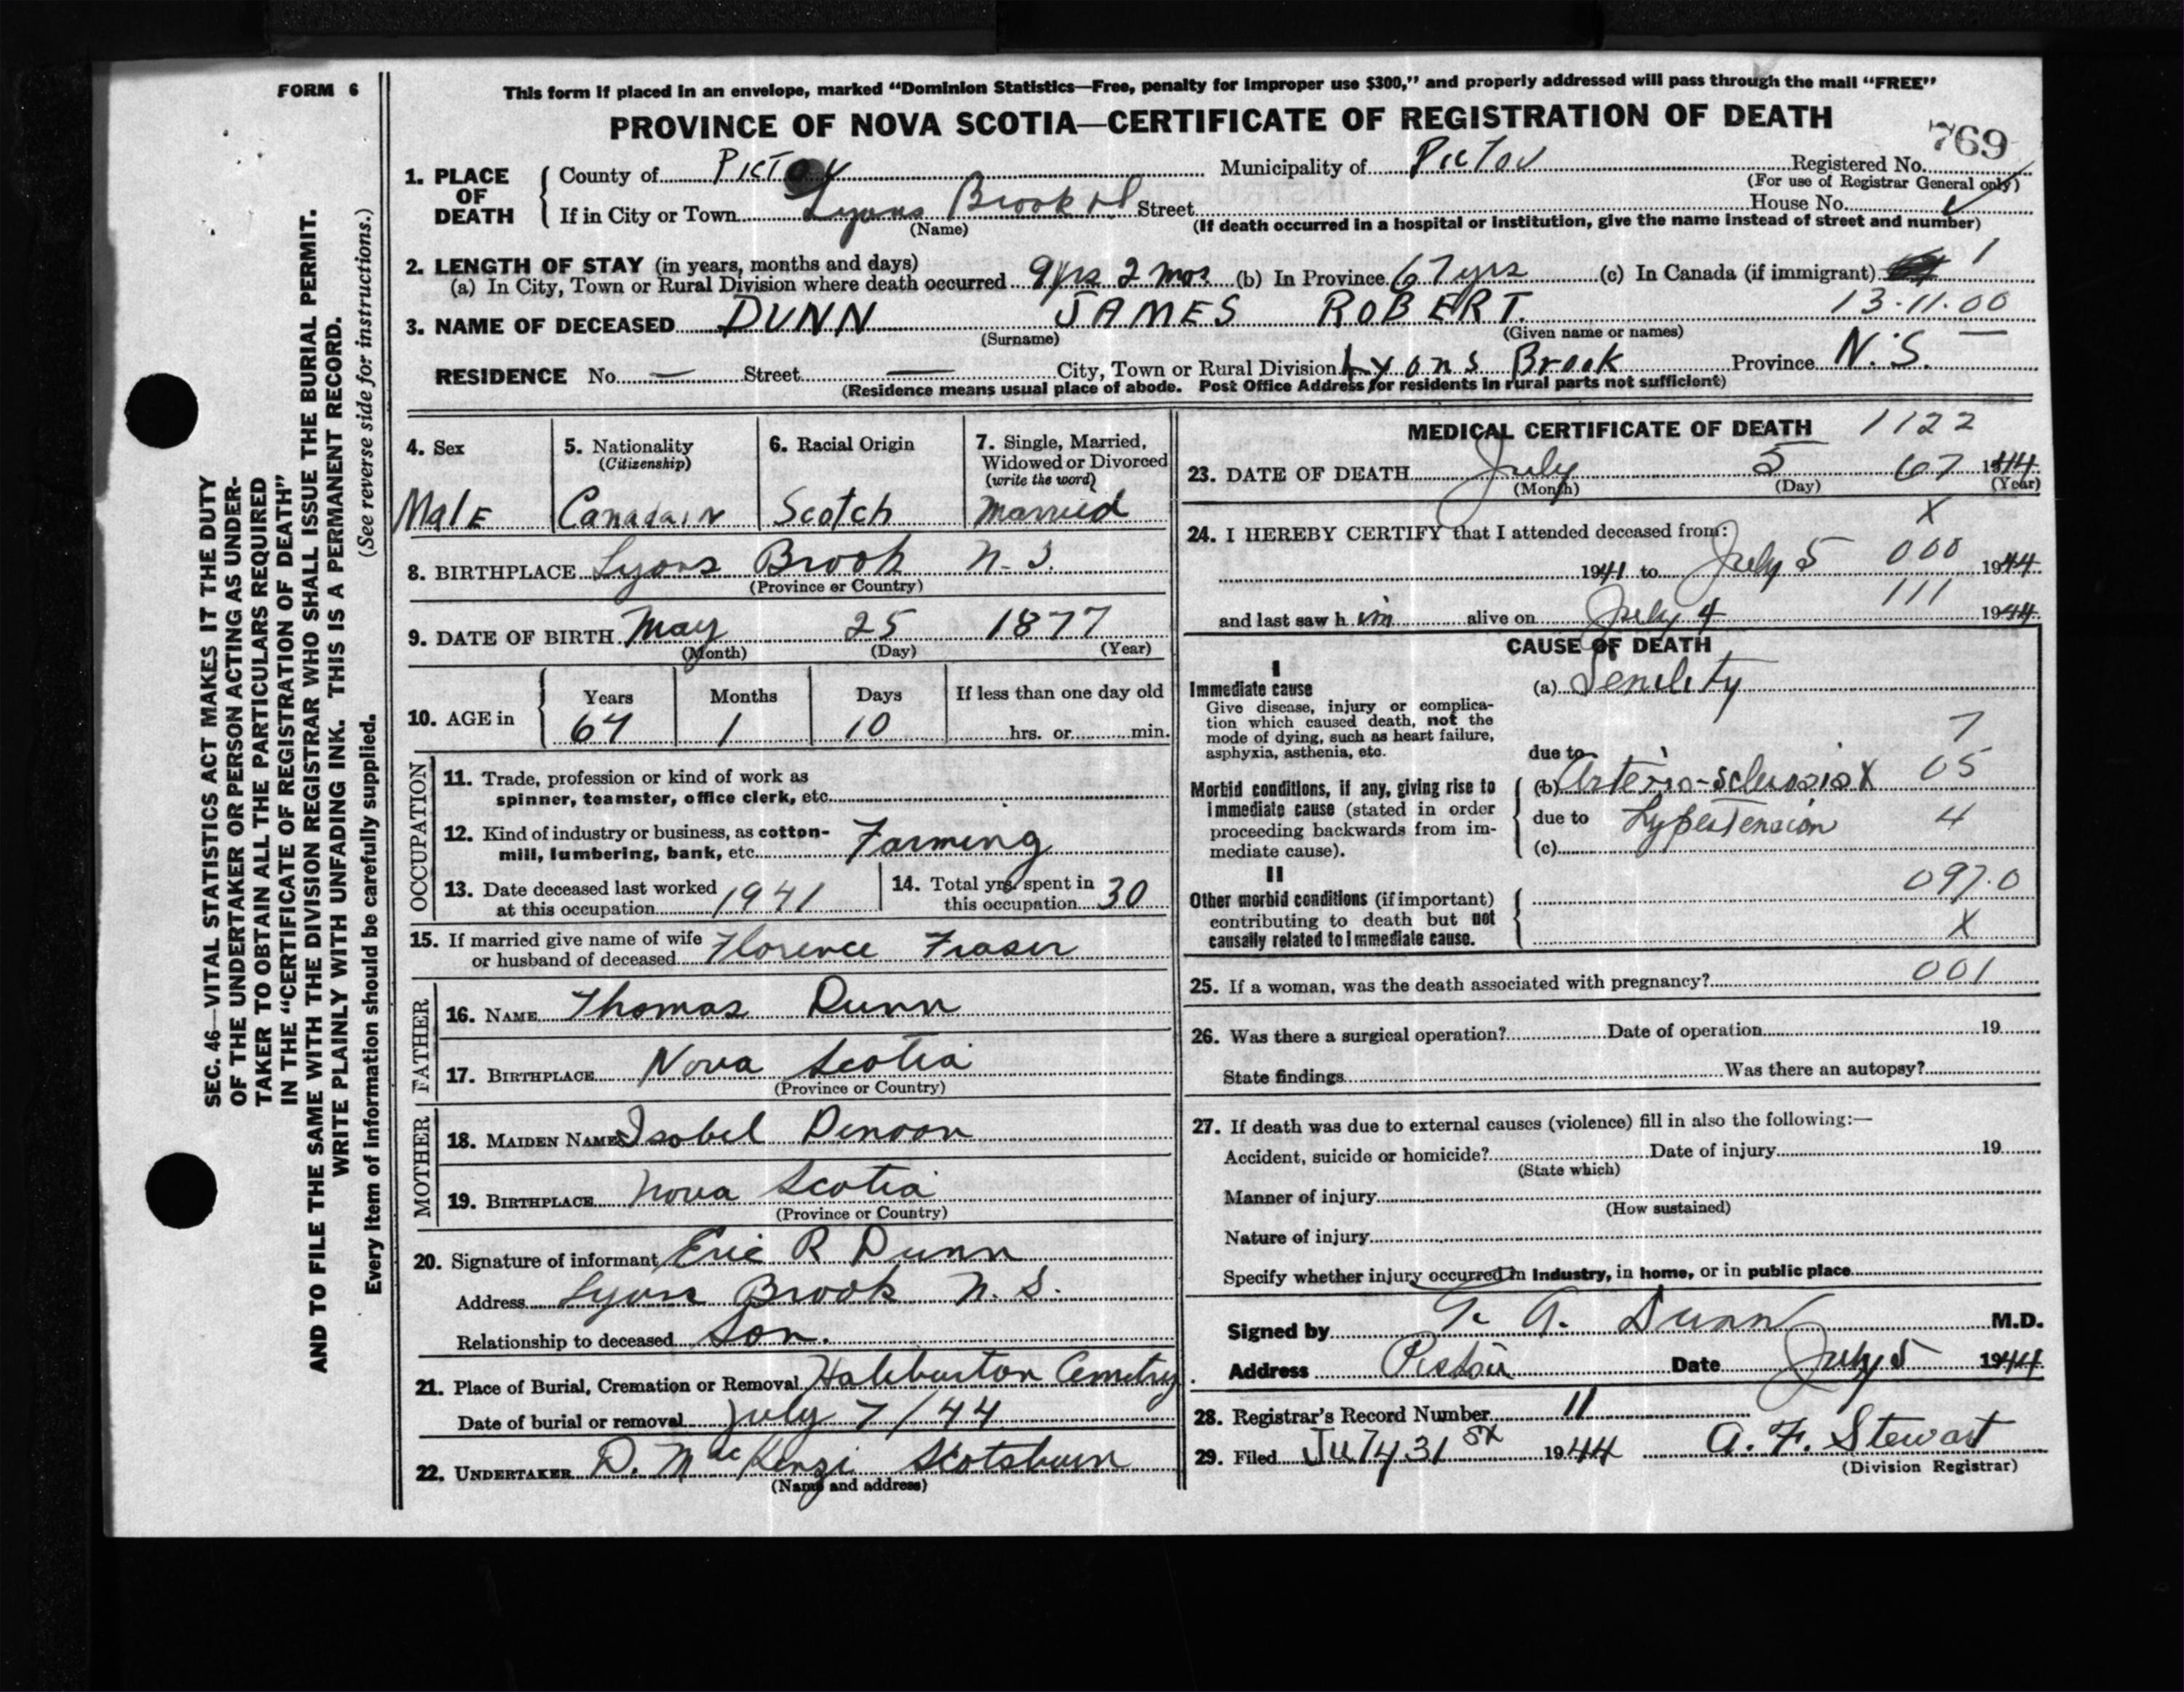 FORM 6
This form if placed in an envelope, marked "Dominion Statistics—Free, penalty for improper use $300," and properly addressed will pass through the mail "FREE"
PROVINCE OF NOVA SCOTIA—CERTIFICATE OF REGISTRATION OF DEATH
769
1. PLACE OF DEATH
County of Pictou Municipality of Pictou Registered No.
(For use of Registrar General only)
If in City or Town Lyons Brook Street House No.
(Name) (If death occurred in a hospital or institution, give the name instead of street and number)
2. LENGTH OF STAY (in years, months and days)
(a) In City, Town or Rural Division where death occurred 9 yrs 2 mos. (b) In Province 67 yrs (c) In Canada (if immigrant) 1
13-11-00
3. NAME OF DECEASED DUNN JAMES ROBERT.
(Surname) (Given name or names)
RESIDENCE No. — Street — City, Town or Rural Division Lyons Brook Province N.S.
(Residence means usual place of abode. Post Office Address for residents in rural parts not sufficient)
4. Sex
Male
5. Nationality
(Citizenship)
Canadain
6. Racial Origin
Scotch
7. Single, Married,
Widowed or Divorced
(write the word)
Married
8. BIRTHPLACE Lyons Brook N.S.
(Province or Country)
9. DATE OF BIRTH May 25 1877
(Month) (Day) (Year)
10. AGE in
Years Months Days If less than one day old
67 1 10 hrs. or min.
OCCUPATION
11. Trade, profession or kind of work as
spinner, teamster, office clerk, etc.
12. Kind of industry or business, as cotton-
mill, lumbering, bank, etc. Farming
13. Date deceased last worked
at this occupation 1941
14. Total yrs. spent in
this occupation 30
15. If married give name of wife
or husband of deceased Florence Fraser
FATHER
16. NAME Thomas Dunn
17. BIRTHPLACE Nova Scotia
(Province or Country)
MOTHER
18. MAIDEN NAME Isobel Denoon
19. BIRTHPLACE Nova Scotia
(Province or Country)
20. Signature of informant Eric R Dunn
Address Lyons Brook N.S.
Relationship to deceased Son.
21. Place of Burial, Cremation or Removal Haliburton Cemetry
Date of burial or removal July 7/44
22. UNDERTAKER D. MacKenzi Scotsburn
(Name and address)
MEDICAL CERTIFICATE OF DEATH 1122
23. DATE OF DEATH July 5 67 1944
(Month) (Day) (Year)
X
24. I HEREBY CERTIFY that I attended deceased from:
000
1941 to July 5 1944
111
and last saw h im alive on July 4 1944
CAUSE OF DEATH
I
Immediate cause
Give disease, injury or complica-
tion which caused death, not the
mode of dying, such as heart failure,
asphyxia, asthenia, etc.
(a) Senility
7
due to
Morbid conditions, if any, giving rise to
immediate cause (stated in order
proceeding backwards from im-
mediate cause).
(b) Arterio-sclerosis X 05
due to Hypertension 4
(c)
II
Other morbid conditions (if important)
contributing to death but not
causally related to immediate cause.
097.0
X
25. If a woman, was the death associated with pregnancy? 001
26. Was there a surgical operation? Date of operation 19
State findings Was there an autopsy?
27. If death was due to external causes (violence) fill in also the following:—
Accident, suicide or homicide? Date of injury 19
(State which)
Manner of injury
(How sustained)
Nature of injury
Specify whether injury occurred in industry, in home, or in public place
Signed by A. Dunn M.D.
Address Pictou Date July 5 1944
28. Registrar's Record Number 11
29. Filed July 31 st 1944 A. F. Stewart
(Division Registrar)
SEC. 46—VITAL STATISTICS ACT MAKES IT THE DUTY
OF THE UNDERTAKER OR PERSON ACTING AS UNDER-
TAKER TO OBTAIN ALL THE PARTICULARS REQUIRED
IN THE "CERTIFICATE OF REGISTRATION OF DEATH"
AND TO FILE THE SAME WITH THE DIVISION REGISTRAR WHO SHALL ISSUE THE BURIAL PERMIT.
WRITE PLAINLY WITH UNFADING INK. THIS IS A PERMANENT RECORD.
(See reverse side for instructions.)
Every item of information should be carefully supplied.